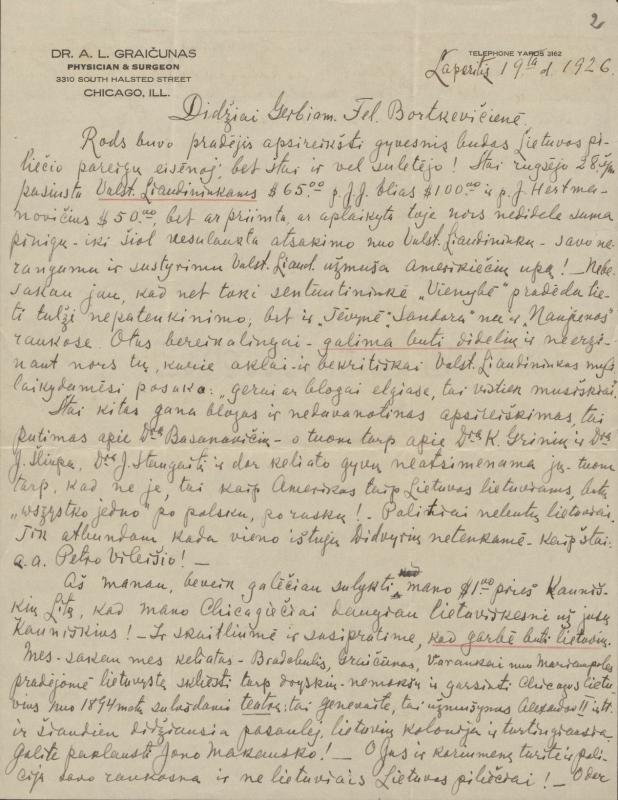 2
DR. A. L. GRAIČUNAS
PHYSICIAN & SURGEON
3310 SOUTH HALSTED STREET
CHICAGO, ILL.
TELEPHONE YARDS 3162
Lapkritis 19ta d. 1926.
Didžiai Gerbiam. Fel. Bortkevičienė.
Rods buvo pradėjęs apsireikšti gyvesnis budas Lietuvos pi-
liečio pareigų eisenoj, bet štai ir vel sulėtėjo! Štai rugsėjo 28,
pasiusta Valst. Liaudininkams $65.00 p. J.J. Elias $100.00 ir p. J. Hertma-
novičius $50.00, bet ar priimta, ar aplaikyta toje nors nedidele suma
pinigų - iki šiol nesulaukta atsakimo nuo Valst. Liaudininkų - savo ne-
rangumu ir sustyrimu Valst. Liaud. užmuša Amerikiečių upą! - Nebe-
sakau jau, kad net toki "Vienybė" pradeda lie-
ti tulžį nepatenkinimo, bet ir "Tėvynė" "Sandara" nu ir "Naujienos"
rankose. Otas bereikalingai - galima buti dideliu ir neerzi-
naut nors tų, kurie aklai ir bekritiškai Valst. Liaudininkas myli
laikydamėsi posako: "gerai ar blogai elgiase, tai vistiek musiškiai.
Štai kitas gana blogas ir nedovanotinas apsireiškimas, tai
putimas apie Dra Basanavičių - o tuom tarp apie Dra K. Grinių ir Dra
J. Šliupą, Dra J. Staugaiti ir dar keliato gyvų neatsimenama jų - tuom
tarp, kad ne jie, tai kaip Amerikos taip Lietuvos lietuviams, butų
"wszystko jedno" po polsku, po rusku! - Palitikiai nelentų lietuviai.
Tik atbundam kada vieno ištujų Didvyrių netenkamė - kaip štai:
a.a. Petro Vileišio! -
Aš manau, beveik galėčiau sulykti kad mano $1.00 prieš Kauniš-
kių Litą, kad mano Chicagiečiai daugiau lietuviškesni už jusų
Kauniškius! - Ir skaitlinime ir susipratime, kad garbė buti lietuviu.
Mes - sakau mes keliatas - Bradchulis, Graičiunas, Varanskai nuo Mariampolės
pradėjomė lietuvystę skliesti tarp - nemokšų ir garsinti Chicagos lietu-
vius nuo 1894 metų sulošdami teatrą: tai Genovaitė, tai užmušymas Alexandro II ir tt.
ir šiandien didžiausia pasaulej, lietuvių kolonija ir turtingiausia.
Galite paklausti Jono Makausko! - O Jus ir kariumenę turite ir poli-
ciją savo rankose ir ne lietuviais Lietuvos piliečiai! - O dar